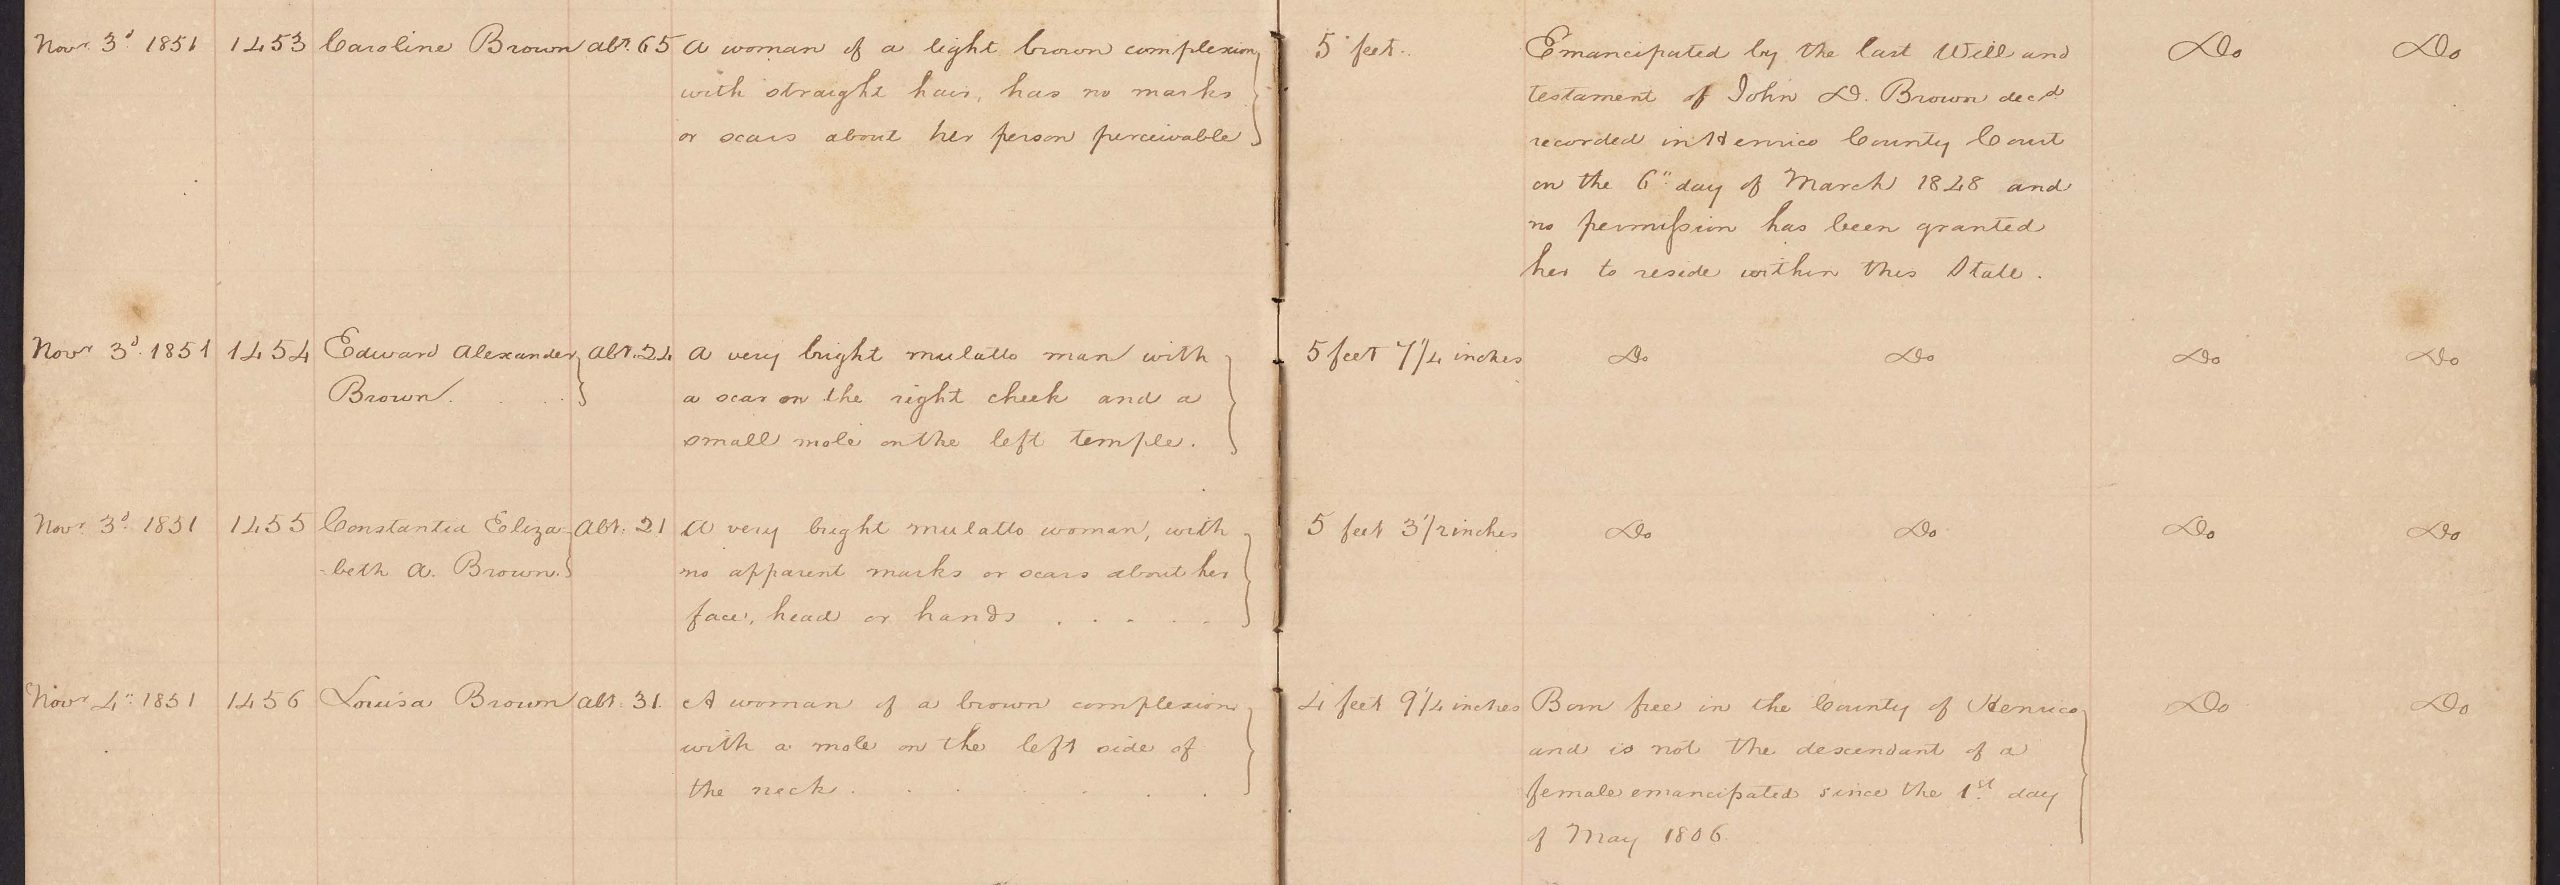 Novr 3d 1851 1453 Caroline Brown abt. 65 A woman of a light brown complexion 5 feet. Emancipated by the last Will and Do Do
with straight hair, has no marks testament of John D. Brown decd
or scars about her person perceivable recorded in Henrico County Court
on the 6" day of March 1848 and
no permission has been granted
her to reside within this State.
Novr 3d. 1851 1454 Edward Alexander abt. 24 A very bright mulatto man with 5 feet 7 1/4 inches Do Do Do Do
Brown. a scar on the right cheek and a
small mole on the left temple.
Novr 3d. 1851 1455 Constantia Eliza- abt. 21 A very bright mulatto woman, with 5 feet 3 1/2 inches Do Do Do Do
-beth A. Brown. no apparent marks or scars about her
face, head or hands . . . . .
Novr 4" 1851 1456 Louisa Brown abt. 31. A woman of a brown complexion 4 feet 9 1/4 inches Born free in the County of Henrico Do Do
with a mole on the left side of and is not the descendant of a
the neck. . . . . . . female emancipated since the 1st day
of May 1806.